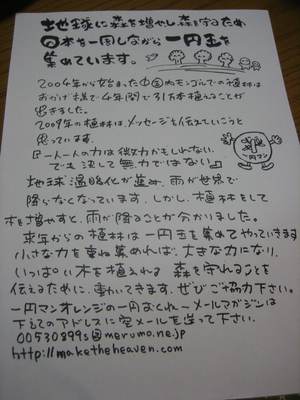 地球に森を増やし森を守るため
日本を一周しながら一円玉を
集めています。
2004年から始まった中国内モンゴルでの植林は
おかげ様で4年間で31万本植えることが
できました。
2009年の植林は、メッセージを伝えていこうと
思っています。
『一人一人の力は微力かもしれない
でも決して無力ではない』
一円マン
地球温暖化が進み、雨が世界で
降らなくなっています。しかし、植林をして
木を増やすと、雨が降ることが分かりました。
来年からの植林は一円玉を集めてやっていきます
小さな力を重ね集めれば、大きな力になり、
いっぱいの木を植えれる 森を守れることを
伝えるために、動いてきます。ぜひご協力下さい。
一円マンオレンジの一円おくれ〜メールマガジンは
下記のアドレスに空メールを送って下さい。
00530899s@merumo.ne.jp
http://maketheheaven.com